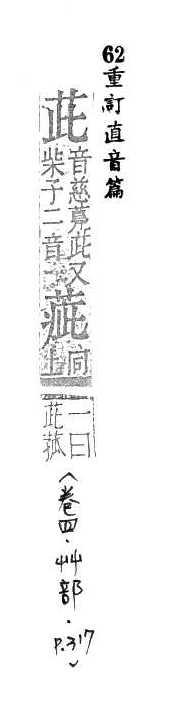 62重訂直音篇
茈
音慈茈又
柴子二音
同
上
一曰
茈菰
〈卷四.艸部.P.317〉